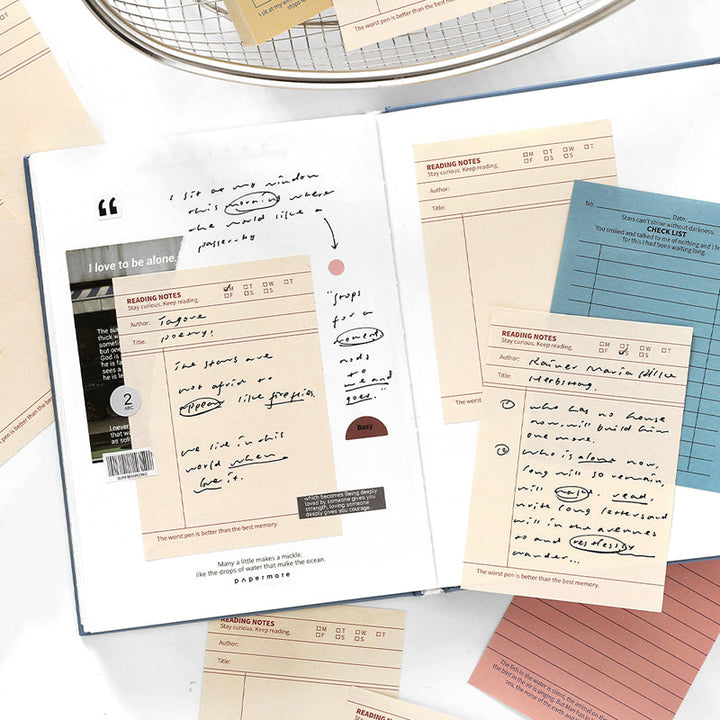 I sit at my
The worst pen is better than the best memory.
“
I sit at my window
this morning where
the world like a
passer-by
I love to be alone.
"stops
for a
moment
nods
to
me and
goes."
READING NOTES
Stay curious. Keep reading.
M T T
F S S
Author: Tagore
Title: poetry!
The stars are
not afraid to
appear like fireflies.
we live in this
world when
love it.
2
ABC.
Busy
The worst pen is better than the best memory.
which becomes Being deeply
loved by someone gives you
strength, loving someone
deeply gives you courage.
Many a little makes a mickle,
like the drops of water that make the ocean.
papermore
READING NOTES
Stay curious. Keep reading.
M T T
F S S
Author:
Title:
No. Date:
Stars can't shine without darkness.
CHECK LIST
You smiled and talked to me of nothing and I fe
for this I had been waiting long.
READING NOTES
Stay curious. Keep reading.
M T T
F S S
Author: Rainer Maria Rilke
Title: Herbsttag.
① who has no house
now. will build him
one more.
② who is alone now,
long will so remain,
will wake, read,
write long letters and
will in the avenues
to and restlessly
wander...
The worst pen is better than the best memory.
READING NOTES
Stay curious. Keep reading.
M T T
F S S
Author:
Title:
READING NOTES
The fish in the water is silent, the animal on the
the bird in the air is singing. But Man has in
sea, the noise of the earth and
pen is better than the best